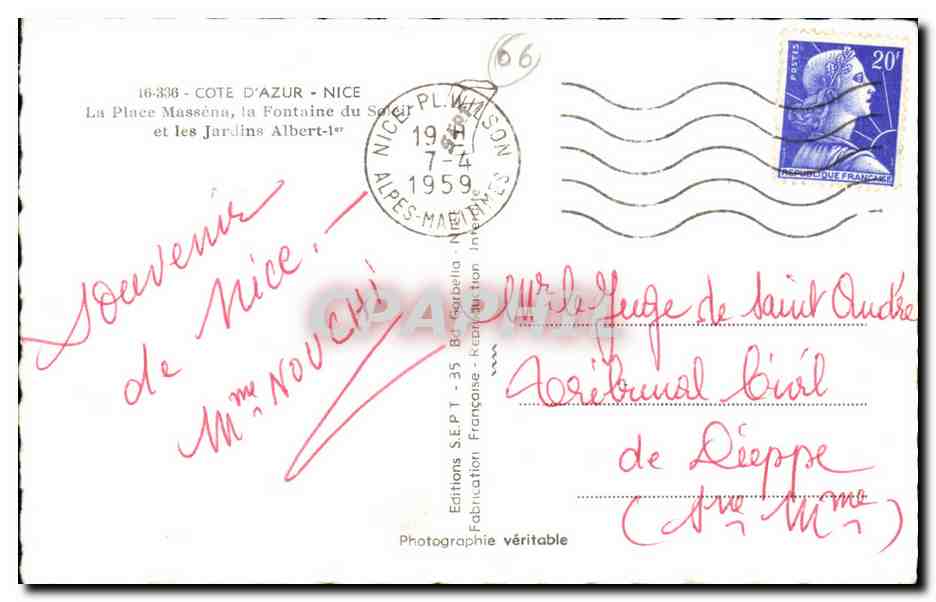 16-336 - COTE D'AZUR - NICE
La Place Masséna, la Fontaine du Soleil
et les Jardins Albert-1er
66
NICE-PL. WILSON
19 H
7-4
1959
ALPES-MARITIMES
POSTES
20F
REPUBLIQUE FRANÇAISE
Souvenir
de Nice. —
Mme NOUCHI
Editions S.E.P.T - 35 Bd Gorbella - NICE
Fabrication Française - Reproduction Interdite
Mr le Juge de Saint André
Tribunal Civil
de Dieppe
(Sne Mme)
Photographie véritable
CPARAMA